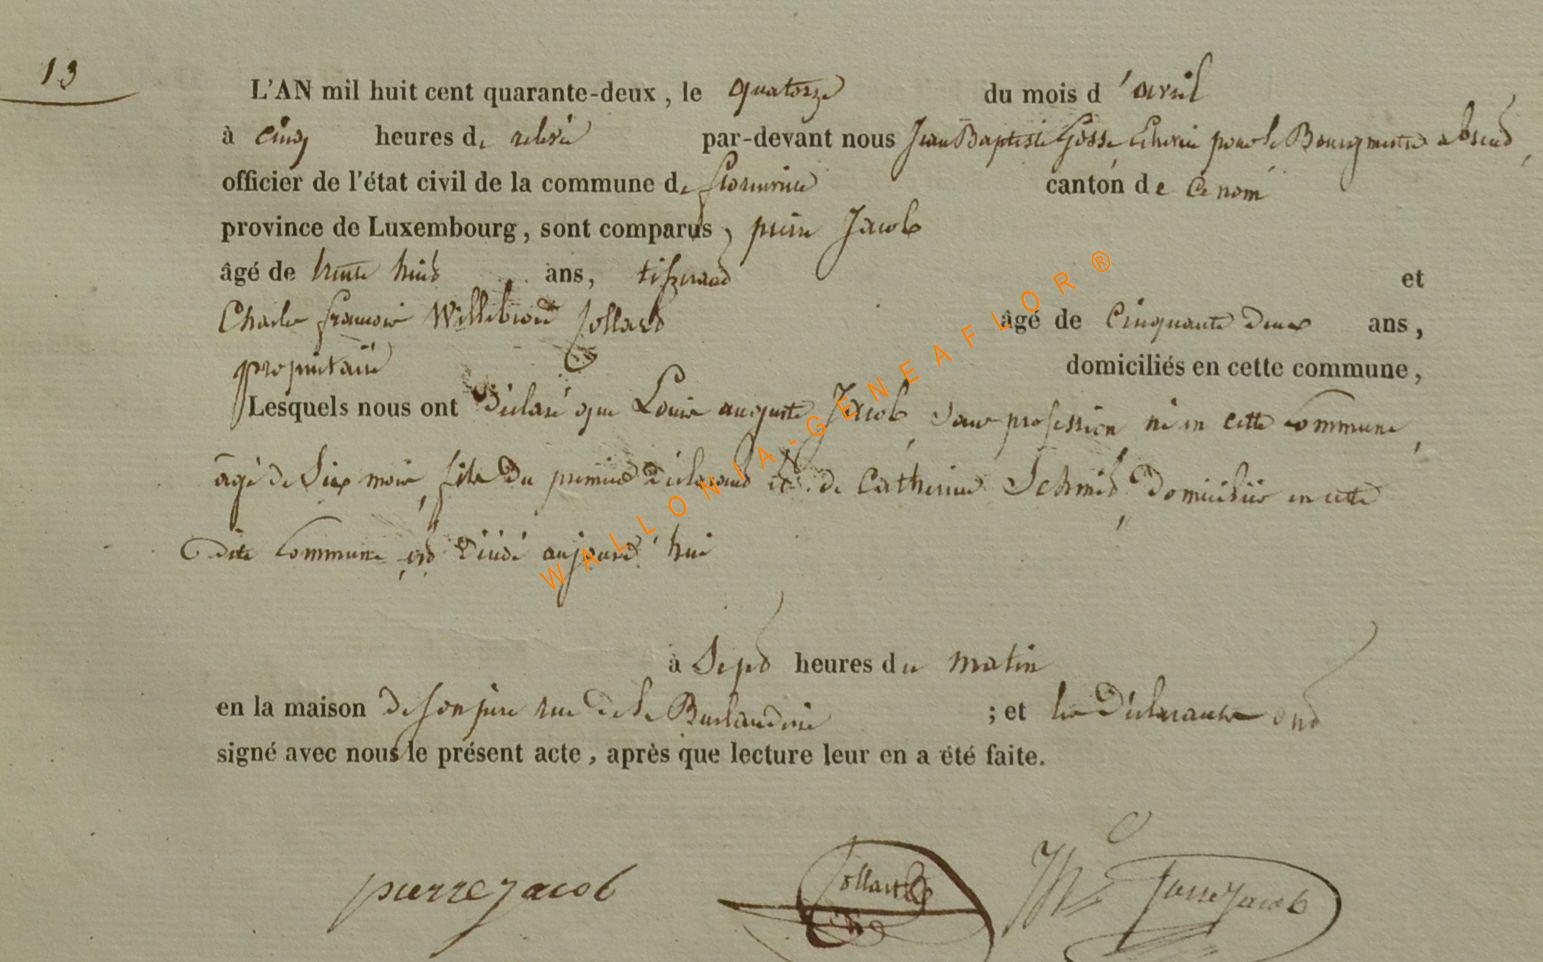 13
L'AN mil huit cent quarante-deux, le quatorze du mois d'avril
à cinq heures de relevée par-devant nous Jean Baptiste Gosse Echevin pour le Bourgmestre absent,
officier de l'état civil de la commune de florenville canton de ce nom
province de Luxembourg, sont comparus, pierre Jacob
âgé de trente huit ans, tisserand et
Charles françois Willebrord Jollard âgé de cinquante deux ans,
propriétaire domiciliés en cette commune,
Lesquels nous ont déclaré que Louis auguste Jacob, sans profession né en cette commune,
agé de Six mois, fils du premier déclarant et de Catherine Schmit, domiciliés en cette
dite commune, est décédé aujourd'hui
à Sept heures du matin
en la maison de son père rue de la ; et les déclarants ont
signé avec nous le présent acte, après que lecture leur en a été faite.
pierre jacob Jollard
WALLONIA-GENEAFLOR®